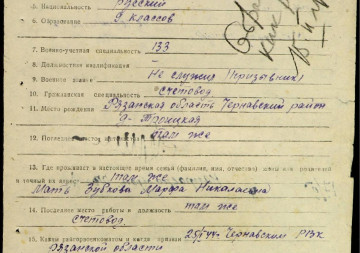 5. Национальность русский
6. Образование 9 классов
7. Военно-учетная специальность 133
8. Должностная квалификация —
9. Военное звание Не служил (призывник)
10. Гражданская специальность счетовод
11. Место рождения Рязанская область Чернавский район
д. Троицкая
12. там же
13. Где проживает в настоящее время семья (фамилия, имя, отчество) жены или родителей
и точный их адрес там же
Мать Зубкова Марфа Николаевна
14. Последнее место работы и должность там же
счетовод
15. Каким райвоенкоматом и когда призван Чернавским РВК
Рязанской области